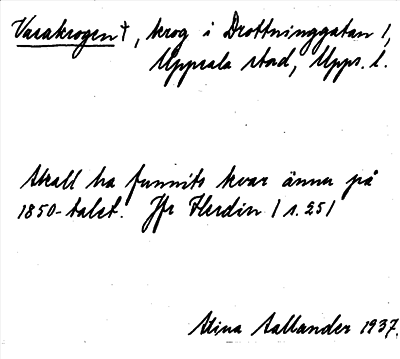 Vasakrogen †, krog i Drottninggatan 1,
Uppsala stad, Upps. l.
Skall ha funnits kvar ännu på
1850-talet. Jfr Herdin 1 s. 251
Stina Sallander 1937.